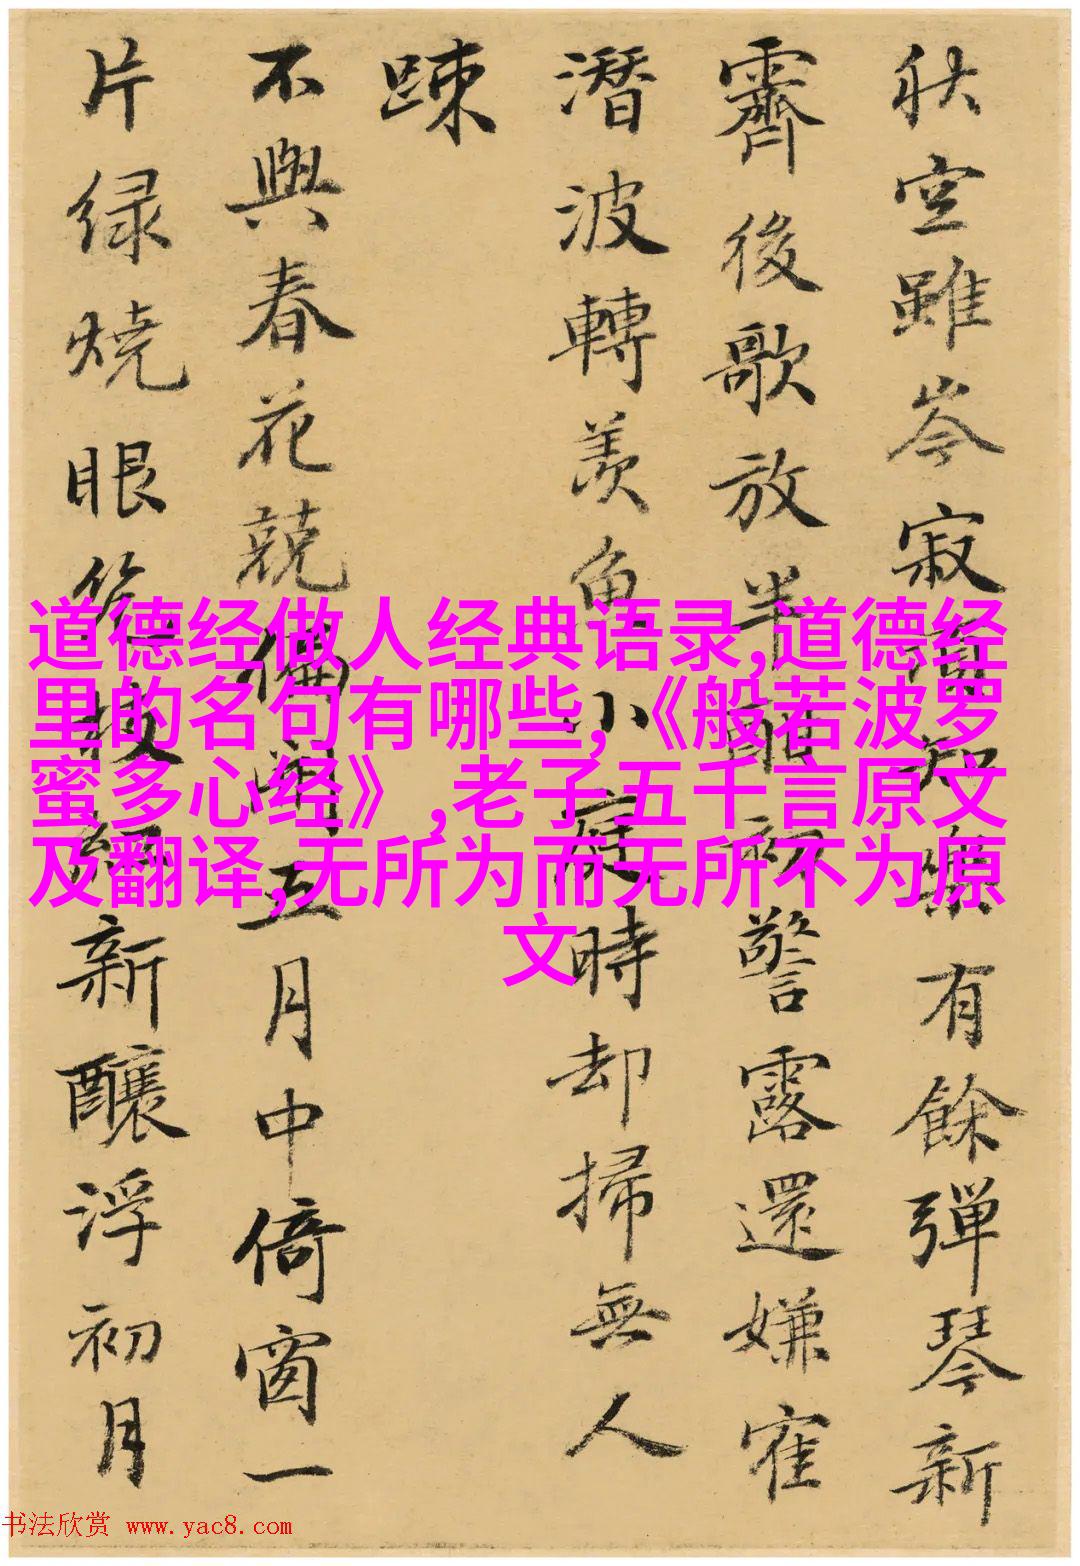 秋空雖岑寂知樂有餘彈琴新
霽後歌放半酣初警露還嫌寉
潛波轉羨魚小庭時却掃無人
踈
不與春花競偏開五月中倚窗一
片緑燒眼枝紅新釀浮初月
道德经做人经典语录,道德经
里的名句有哪些,《般若波罗
蜜多心经》,老子五千言原文
及翻译,无所为而无所不为原
文
书法欣赏 www.yac8.com